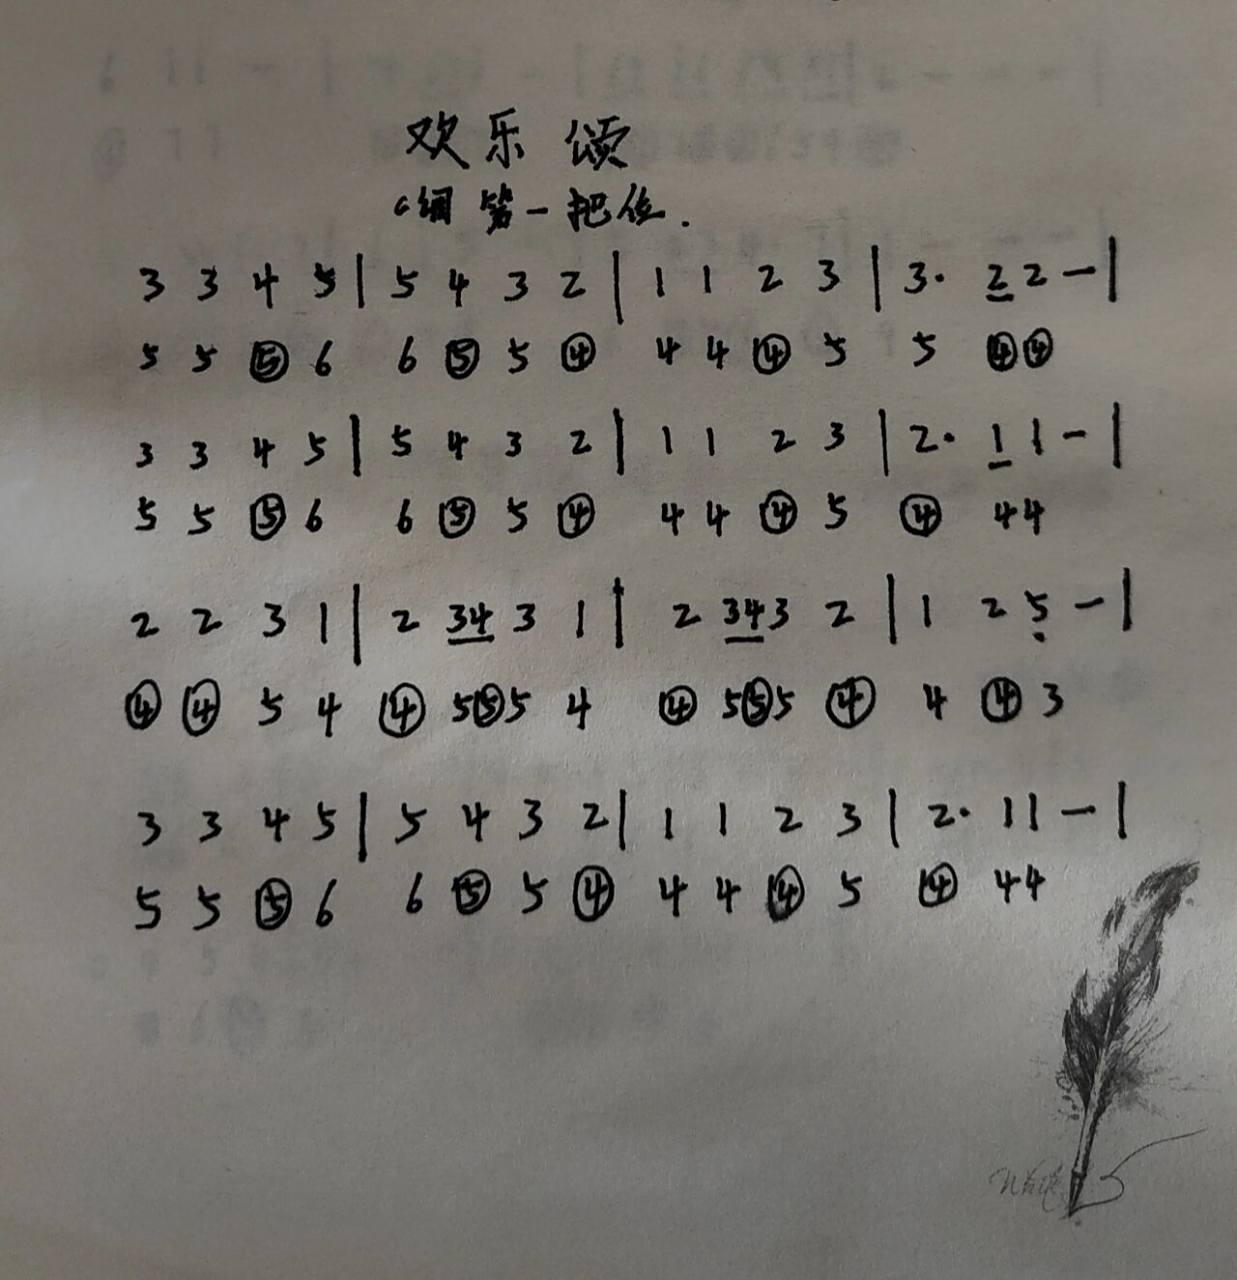 欢乐颂
C调 第一把位.
3 3 4 5 | 5 4 3 2 | 1 1 2 3 | 3· 2 2 - |
5 5 ⑤ 6 6 ⑤ 5 ④ 4 4 ④ 5 5 ④④
3 3 4 5 | 5 4 3 2 | 1 1 2 3 | 2· 1 1 - |
5 5 ⑤ 6 6 ⑤ 5 ④ 4 4 ④ 5 ④ 4 4
2 2 3 1 | 2 34 3 1 | 2 34 3 2 | 1 2 5̣ - |
④ ④ 5 4 ④ 5⑤5 4 ④ 5⑤5 ④ 4 ④ 3
3 3 4 5 | 5 4 3 2 | 1 1 2 3 | 2· 1 1 - |
5 5 ⑤ 6 6 ⑤ 5 ④ 4 4 ④ 5 ④ 4 4